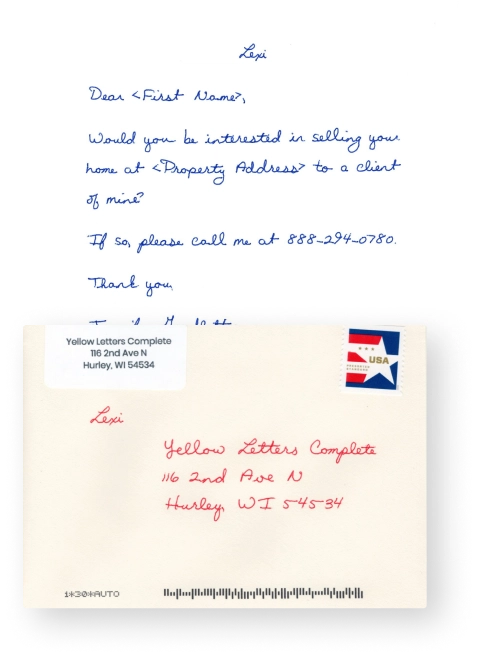 Lexi
Dear <First Name>,
Would you be interested in selling your
home at <Property Address> to a client
of mine?
If so, please call me at 888-294-0780.
Thank you,
Yellow Letters Complete
116 2nd Ave N
Hurley, WI 54534
USA
Lexi
Yellow Letters Complete
116 2nd Ave N
Hurley, WI 54534
1*30*AUTO